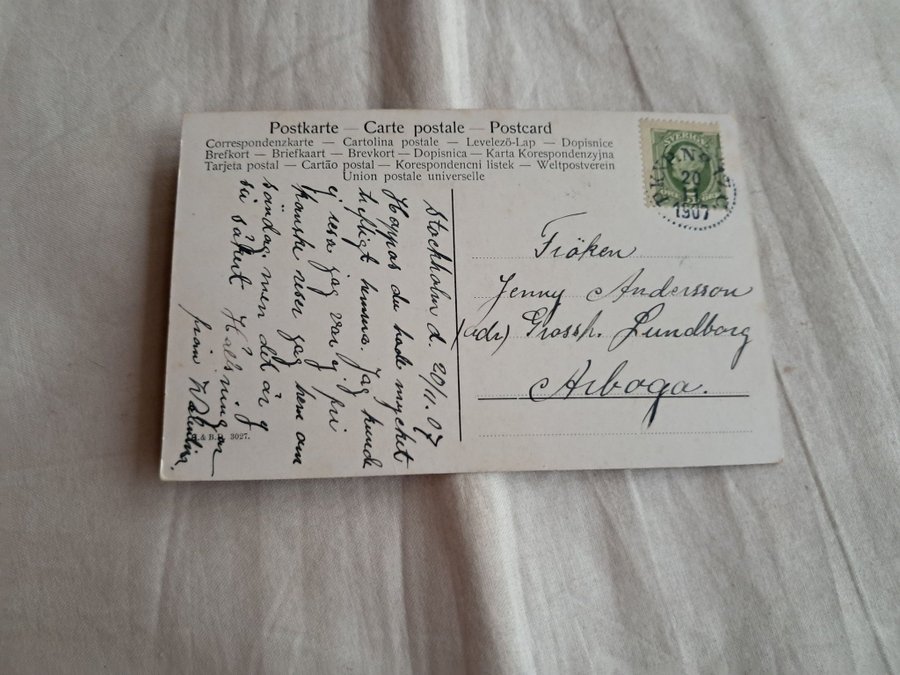 Postkarte — Carte postale — Postcard
Correspondenzkarte — Cartolina postale — Levelezö-Lap — Dopisnice
Brefkort — Briefkaart — Brevkort — Dopisnica — Karta Korespondenzyjna
Tarjeta postal — Cartão postal — Korespondencni listek — Weltpostverein
Union postale universelle
SVERIGE
20
11
1907
Stockholm d. 20/11.07
Hoppas du hade mycket
hyfligt hemma. Jag kunde
ej resa jag var ej fri
Kanske reser jag hem om
söndag, men det är ej
så säkert Hälsningar
från
Fröken
Jenny Andersson
(adr) Grossh. Lundborg
Arboga.
& B. 3027.